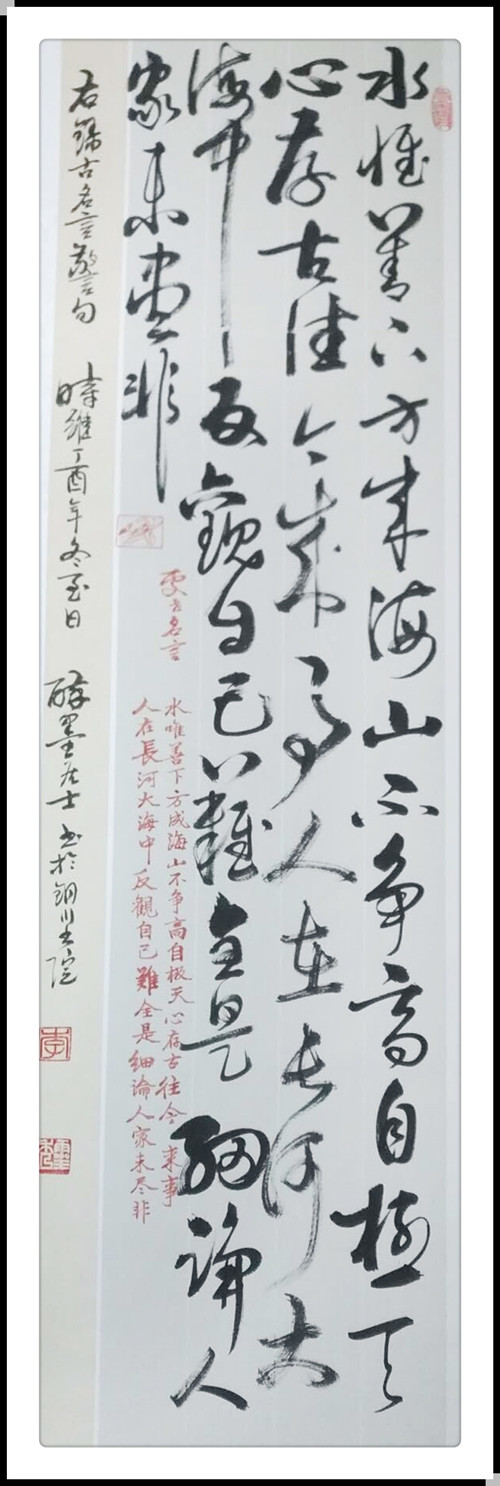 水惟善下方成海山不争高自极天
心存古往今来事人在长河大
海中反观自己难全是细论人
家未尽非
处世名言
水唯善下方成海山不争高自极天心存古往今来事
人在長河大海中反觀自己難全是细論人家未尽非
右録古名言警句 時維丁酉年冬至日 醉墨居士书於